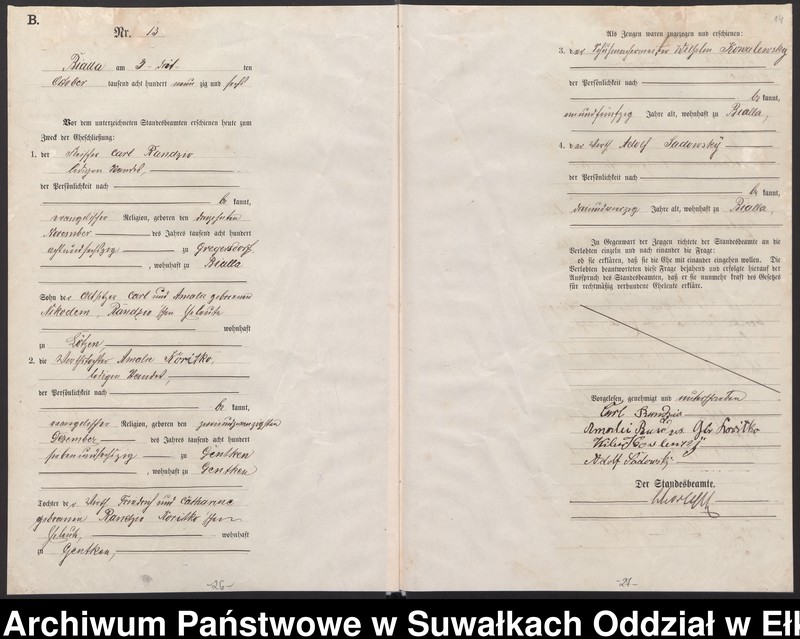 B.
Nr. 13
Bialla am 3. ten
October tausend acht hundert neun zig und sechs
Vor dem unterzeichneten Standesbeamten erschienen heute zum
Zweck der Eheschließung:
1. der Carl Randzio
ledigen Standes,
der Persönlichkeit nach
be kannt,
evangelischer Religion, geboren den dreizehnten
November des Jahres tausend acht hundert
achtundsechszig zu Gregersdorf
, wohnhaft zu Bialla
Sohn der Altsitzer Carl und Amalie geborenen
Nikodem, Randzio schen Eheleute
wohnhaft
zu Lötzen,
2. die Wirthstochter Amalie Koritko,
ledigen Standes,
der Persönlichkeit nach
be kannt,
evangelischer Religion, geboren den zweiundzwanzigsten
Dezember des Jahres tausend acht hundert
siebenundsechszig zu Gentken
, wohnhaft zu Gentken
Tochter der Wirth Friedrich und Catharine
geborenen Randzio Koritko schen
Eheleute, wohnhaft
zu Gentken,
-26-
14
Als Zeugen waren zugezogen und erschienen:
3. der Schuhmachermeister Wilhelm Kowalewsky
der Persönlichkeit nach
be kannt,
einundfünfzig Jahre alt, wohnhaft zu Bialla,
4. der Wirth Adolf Sadowsky
der Persönlichkeit nach
be kannt,
Jahre alt, wohnhaft zu Bialla,
In Gegenwart der Zeugen richtete der Standesbeamte an die
Verlobten einzeln und nach einander die Frage:
ob sie erklären, daß sie die Ehe mit einander eingehen wollen. Die
Verlobten beantworteten diese Frage bejahend und erfolgte hierauf der
Ausspruch des Standesbeamten, daß er sie nunmehr kraft des Gesetzes
für rechtmäßig verbundene Eheleute erkläre.
Vorgelesen, genehmigt und unterschrieben
Carl Randzio
Amalie Randzio geb Koritko
Wilhelm Kowalewsky
Adolf Sadowsky
Der Standesbeamte.
-27-
Archiwum Państwowe w Suwałkach Oddział w Eł